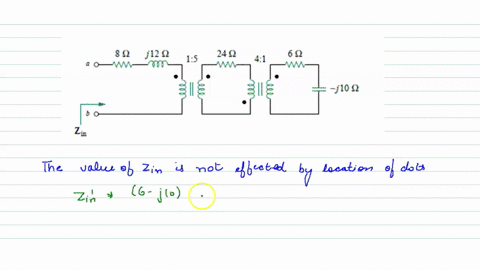 8 Ω j12 Ω 1:5 24 Ω 4:1 6 Ω
a
-j10 Ω
b
Zin
The value of Zin is not effected by location of dots
Zin' * (6-j10)